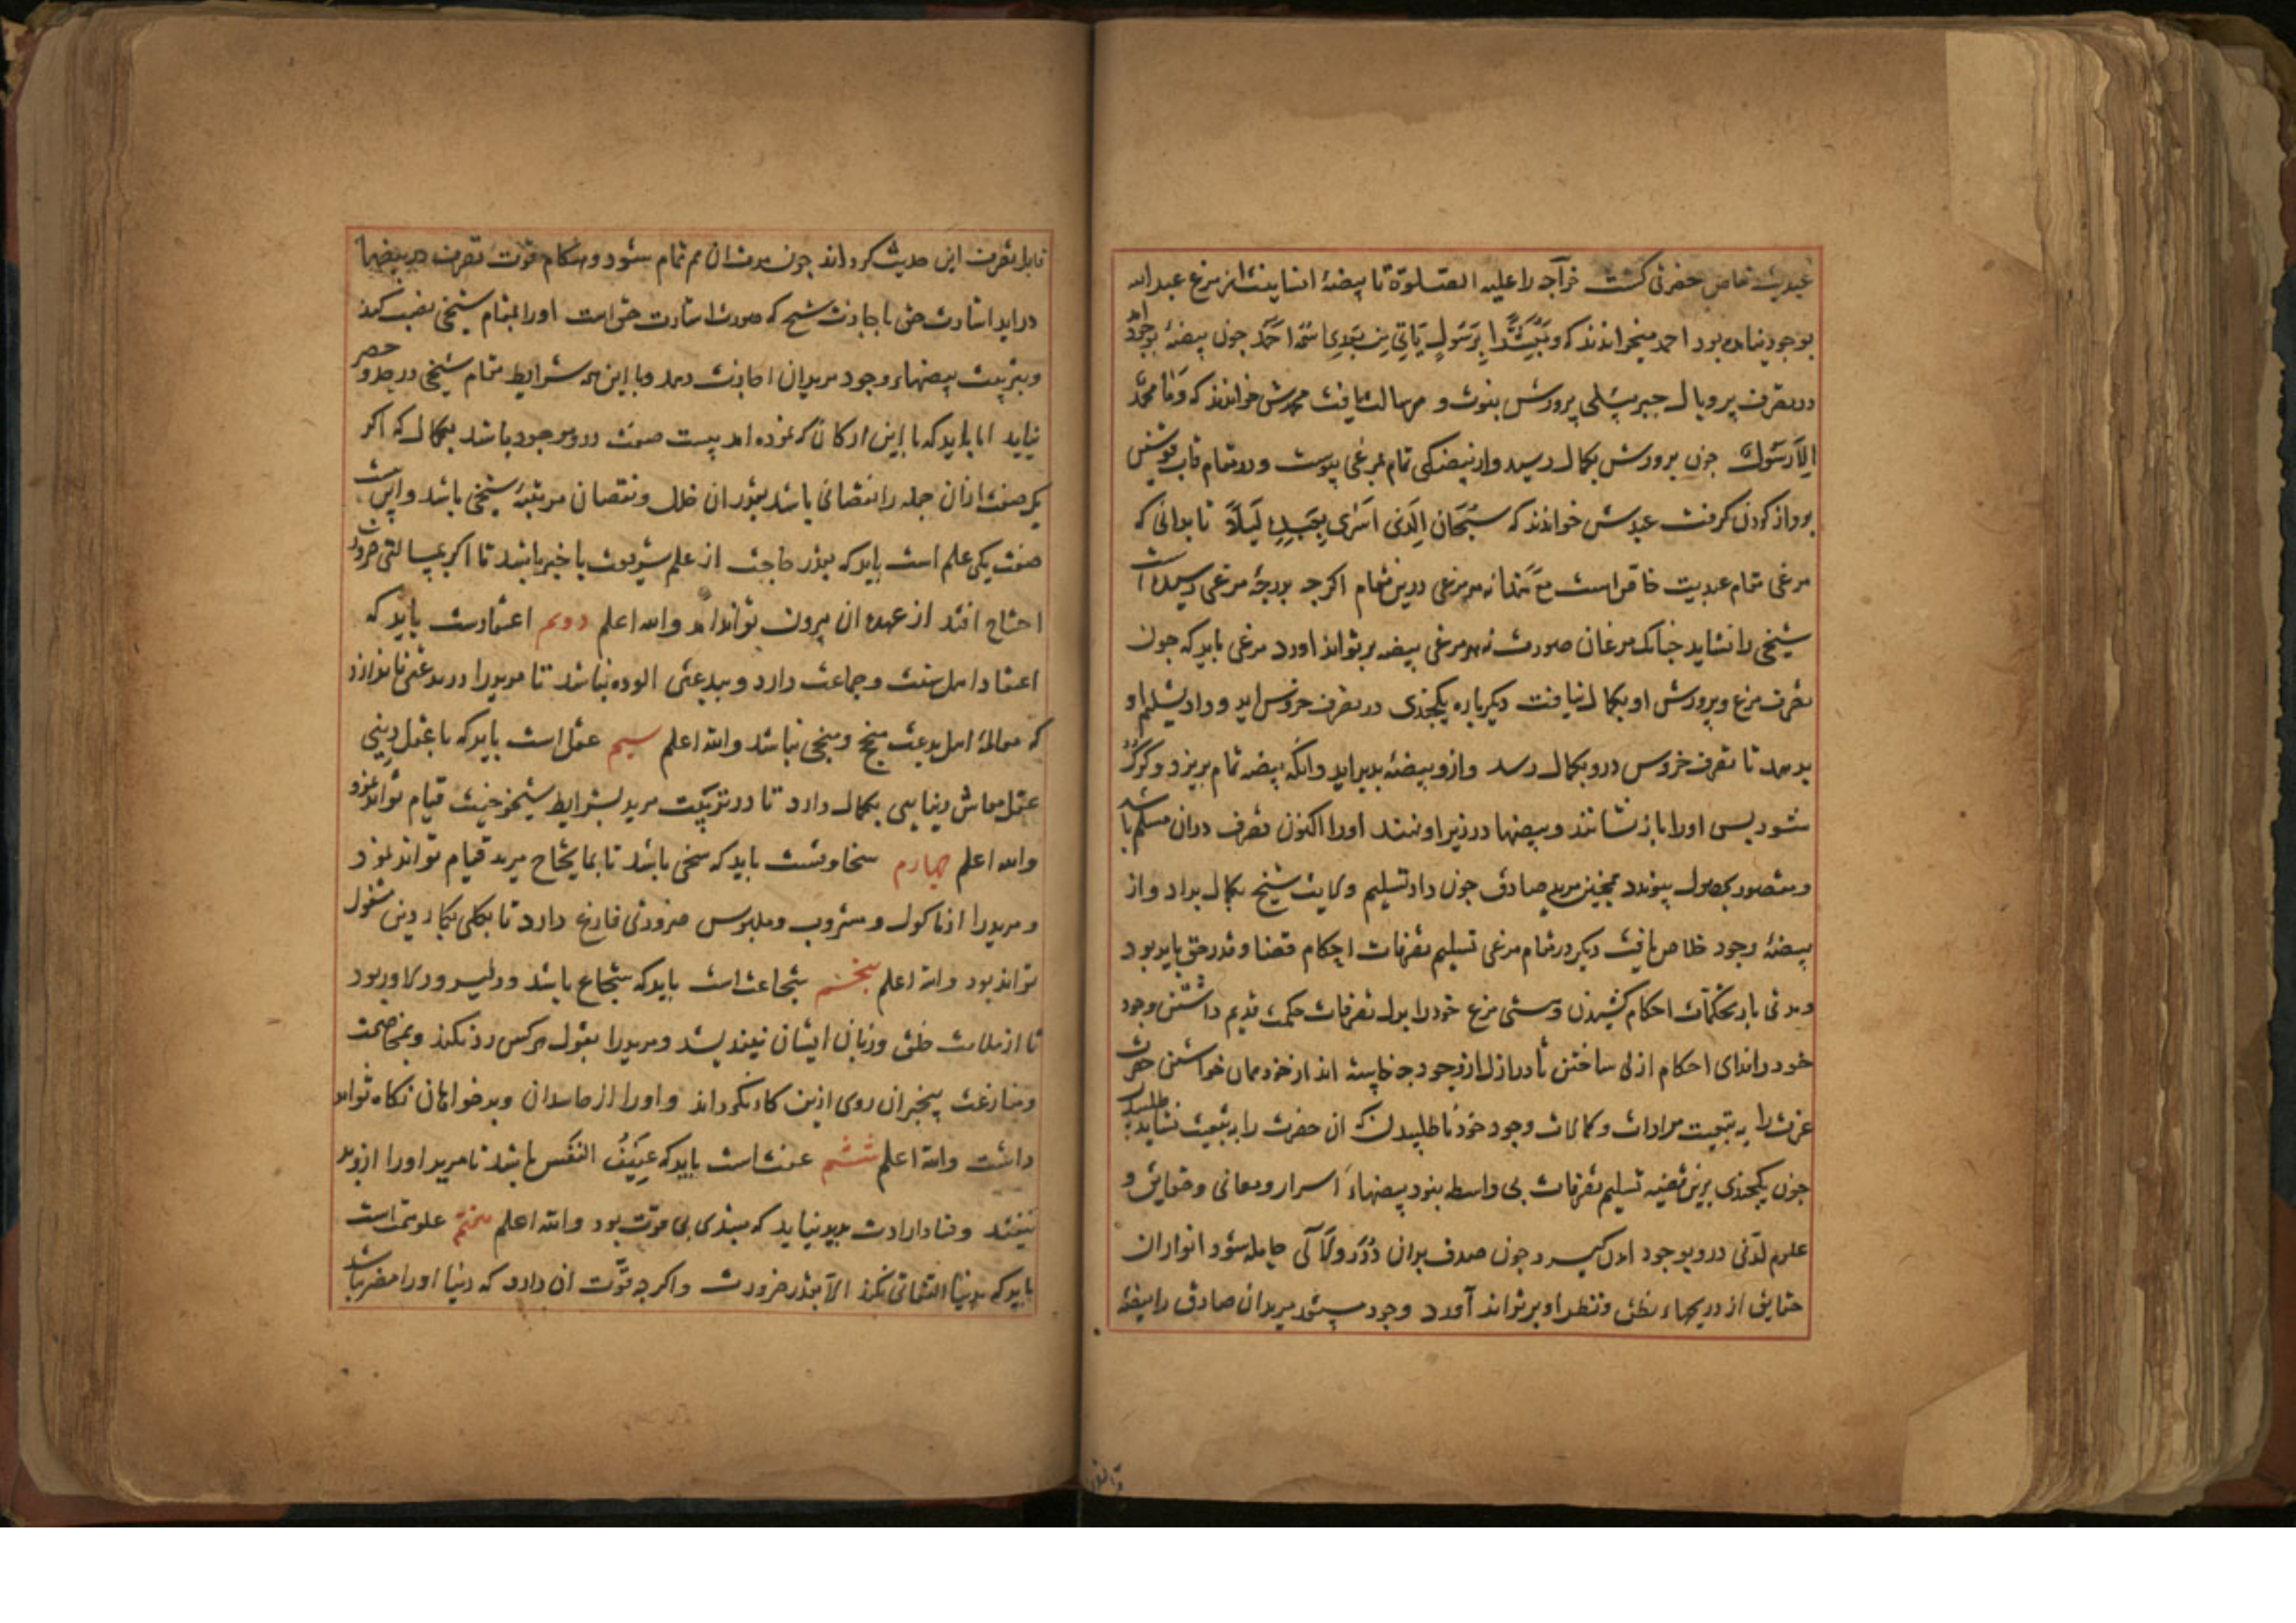 عبدیت خاص حضرتی کشت خواجه را علیه الصلوة تا بیضهٔ انسانیتش از مرغ عبد الله
بوجود نیامده بود احمد میخواندند که وَمُبَشِّرًا بِرَسُولٍ یَاتِی مِن بَعدِی اسمُهُ اَحمَد چون بیضهٔ بوجود امد
در تصرف پر و بال جبریئلی پرورش نبوت و رسالت یافت محمدش خواندند که وَمَا مُحَمَّد
اِلّا رَسُول چون پرورش بکمال رسید و از بیضکی تمام بمرغی پیوست و در مقام قاب قوسین
پرواز کردن کرفت عبدش خواندند که سُبحَان الَّذی اَسری بِعَبدِهِ لَیلاً تا بدانی که
مرغی مقام عبدیت خاص است مع هذا نه هر مرغی درین مقام اکرچه بدرجهٔ مرغی رسیده است
شیخی را نشاید چنانک مرغان صورت نه هر مرغی بیضه بر تواند اورد مرغی باید که چون
تصرف مرغ و پرورش او بکمال یافت دیکرباره یکچندی در تصرف خروس اید و داد تسلیم او
بدهد تا تصرف خروس درو بکمال رسد و ازو بیضه پدید اید وانکه بیضه تمام بریزد و کرک
شود پس او را باز نشانند و بیضها در زیر او نهند او را اکنون تصرف دران مسلم باشد
و مقصود بحصول پیوندد همچنین مرید صادق چون داد تسلیم ولایت شیخ بکمال بداد و از
بیضهٔ وجود خلاص یافت دیکر در مقام مرغی تسلیم تصرفات احکام قضا و قدر حق باید بود
و مدتی بار تحکمات احکام کشیدن و هستی مرغ خود را بدل تصرفات حکمت قدیم داشتن وجود
خود را فدای احکام ازلی ساختن تا در ازل از وجود چه خاسته اند از خود همان خواستن حضرت
عزت را به تبعیت مرادات و کمالات وجود خود نا طلبیدن که ان حضرت را به تبعیت نشاید طلبید
چون یکچندی برین قضیه تسلیم تصرفات بی واسطه بنود بیضهاءِ اسرار و معانی و حقایق و
علوم لدنی درو بوجود امدن کیرد چون صدف بدان دُرَر و لآلی حامله شود انوار ان
حقایق از دریچهاء نطق و نظر او بر تواند آورد وجود مستعد مریدان صادق را بیضهٔ
قابل تصرف این حدیث کرداند چون مدت ان هم تمام شود و هنکام قوت تصرف در بیضها
دراید اشارت حق با اجازت شیخ که صورت اشارت حق است او را بمقام شیخی نصب کند
و بتربیت بیضهاء وجود مریدان اجازت دهد و با این همه شرایط مقام شیخی در حد و حصر
نیاید اما باید که با این ارکان که نموده امد بیست صفت درو موجود باشد بکمال که اکر
یک صفت ازان جمله را نقصانی باشد بقدر ان خلل و نقصان مرتبهٔ شیخی باشد و این بیست
صفت یکی علم است باید که بقدر حاجت از علم شریعت با خبر باشد تا اکر بمسالتی ضرورت
احتیاج افتد از عهده ان بیرون تواند امد والله اعلم دویم اعتقادست باید که
اعتقاد اهل سنت و جماعت دارد و ببدعتی الوده نباشد تا مرید را در بدعتی نا نندازد
که معاملهٔ اهل بدعت منتج و منجی نباشد والله اعلم سیم عقل است باید که با عقل دینی
عقل معاش دنیایی بکمال دارد تا در تربیت مرید بشرایط شیخوخیت قیام تواند نمود
والله اعلم چهارم سخاوتست باید که سخی باشد تا بمایحتاج مرید قیام تواند نمود
و مرید را از ماکول و مشروب و ملبوس ضروری فارغ دارد تا بکلی بکار دین مشغول
تواند بود والله اعلم پنجم شجاعت است باید که شجاع باشد و دلیر و دلاور بود
تا از ملامت خلق و زبان ایشان نیندیشد و مرید را بقول هر کس رد نکند و بمخاصمت
و منازعت بیخبران روی ازین کار نکرداند و او را از حاسدان و بدخواهان نکاه تواند
داشت والله اعلم ششم عفت است باید که عَفِیفُ النَّفس باشد تا مرید او را ازو بد
نیفتد و فساد ارادت پدید نیاید که مبتدی بی قوت بود والله اعلم هفتم علو همت است
باید که بدنیا التفاتی نکند الا بقدر ضرورت و اکرچه قوّت ان دارد که دنیا او را مضر نباشد